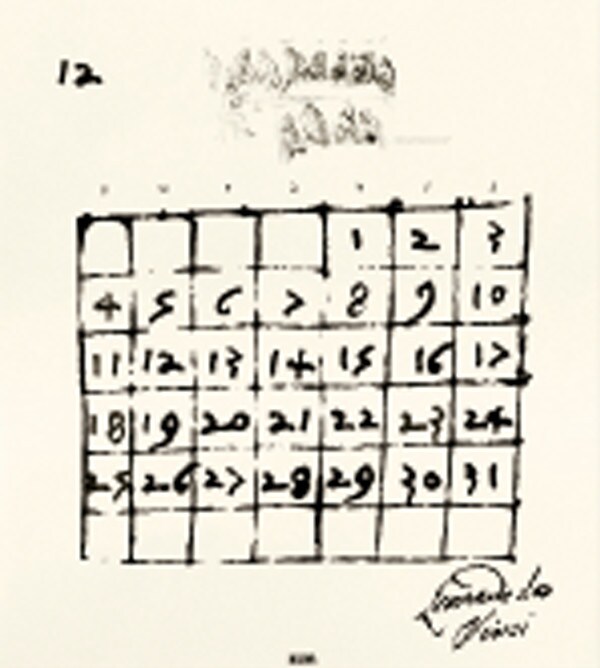 12
1 2 3
4 5 6 7 8 9 10
11 12 13 14 15 16 17
18 19 20 21 22 23 24
25 26 27 28 29 30 31
Vinci